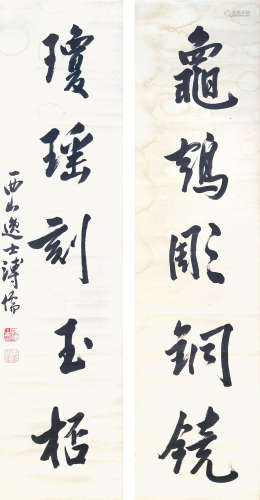 龜鵠彫銅鏡
瓊瑤刻玉桮
西山逸士溥儒